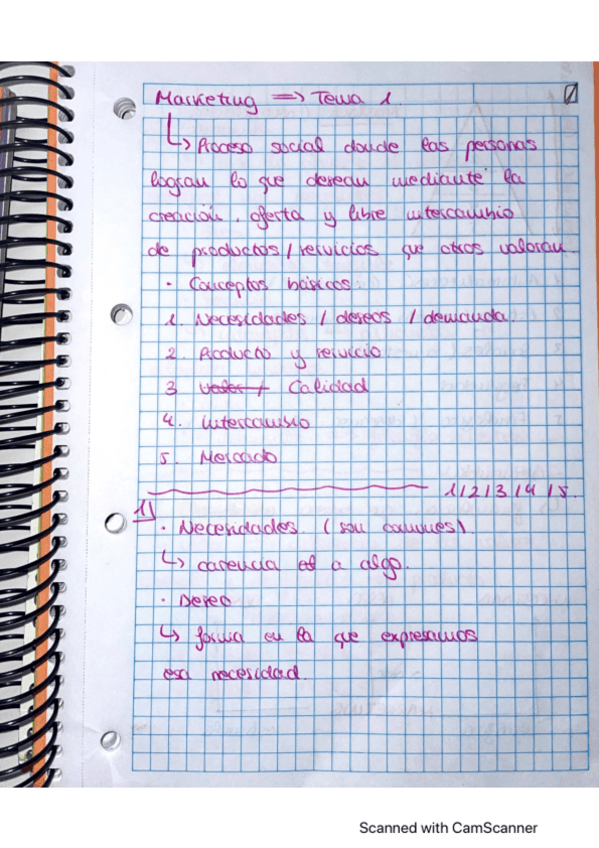 Marketing => Tema 1.
↳ Proceso social donde las personas
logran lo que desean mediante la
creación, oferta y libre intercambio
de productos/servicios que otros valoran.
· Conceptos básicos
1. Necesidades / deseos / demanda.
2. Producto y servicio
3 Calidad
4. intercambio
5. Mercado
1/2/3/4/5.
1)
· Necesidades. (son comunes)
↳ carencia a algo.
· Deseo
↳ forma en la que expresamos
esa necesidad.
Scanned with CamScanner